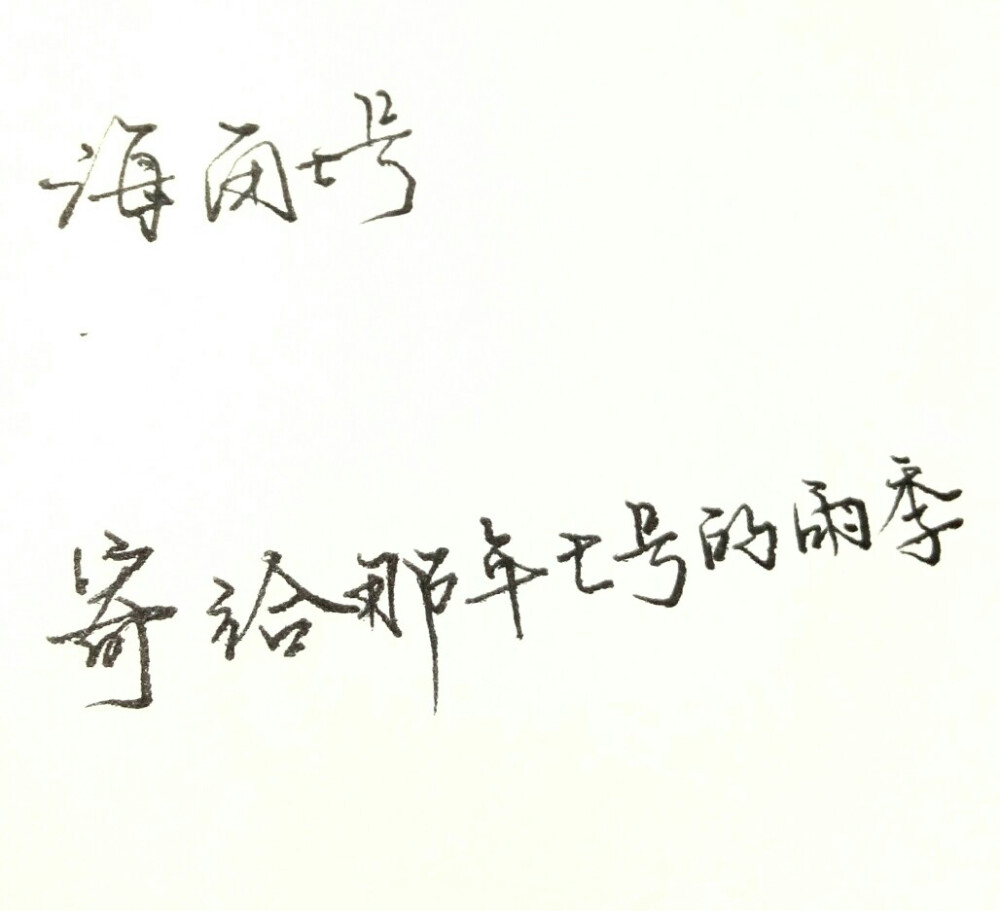 海雨七号
寄给那年七号的雨季